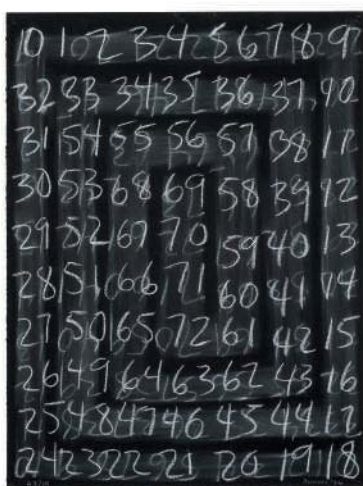 10 1 2 3 4 5 6 7 8 9
32 33 34 35 36 37 10
31 54 55 56 57 38 11
30 53 68 69 58 39 12
29 52 67 70 59 40 13
28 51 66 71 60 41 14
27 50 65 72 61 42 15
26 49 64 63 62 43 16
25 48 47 46 45 44 17
24 23 22 21 20 19 18